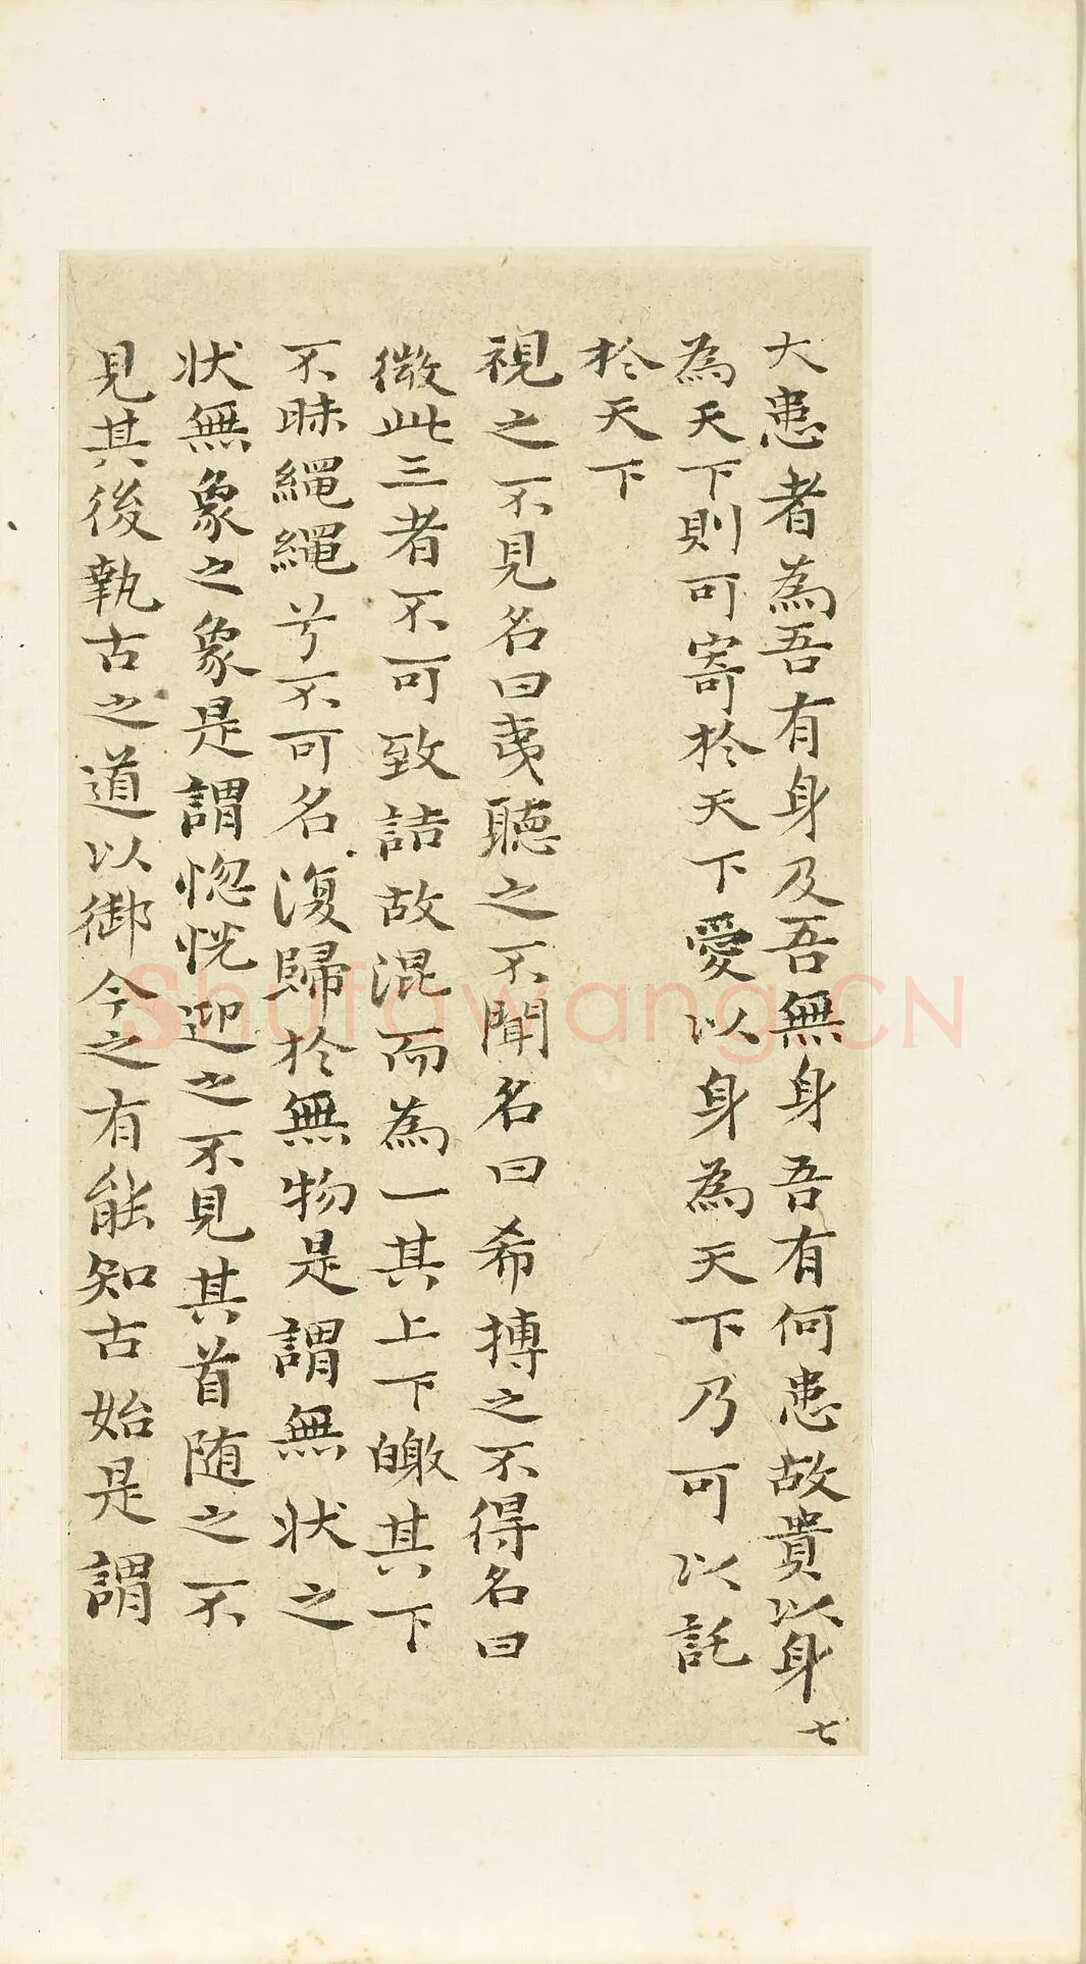 大患者為吾有身及吾無身吾有何患故貴以身
七
為天下則可寄於天下愛以身為天下乃可以託
於天下
視之不見名曰夷聽之不聞名曰希搏之不得名曰
微此三者不可致詰故混而為一其上下皦其下
不昧繩繩兮不可名復歸於無物是謂無狀之
狀無象之象是謂惚恍迎之不見其首随之不
見其後執古之道以御今之有能知古始是謂
Shufawang.CN